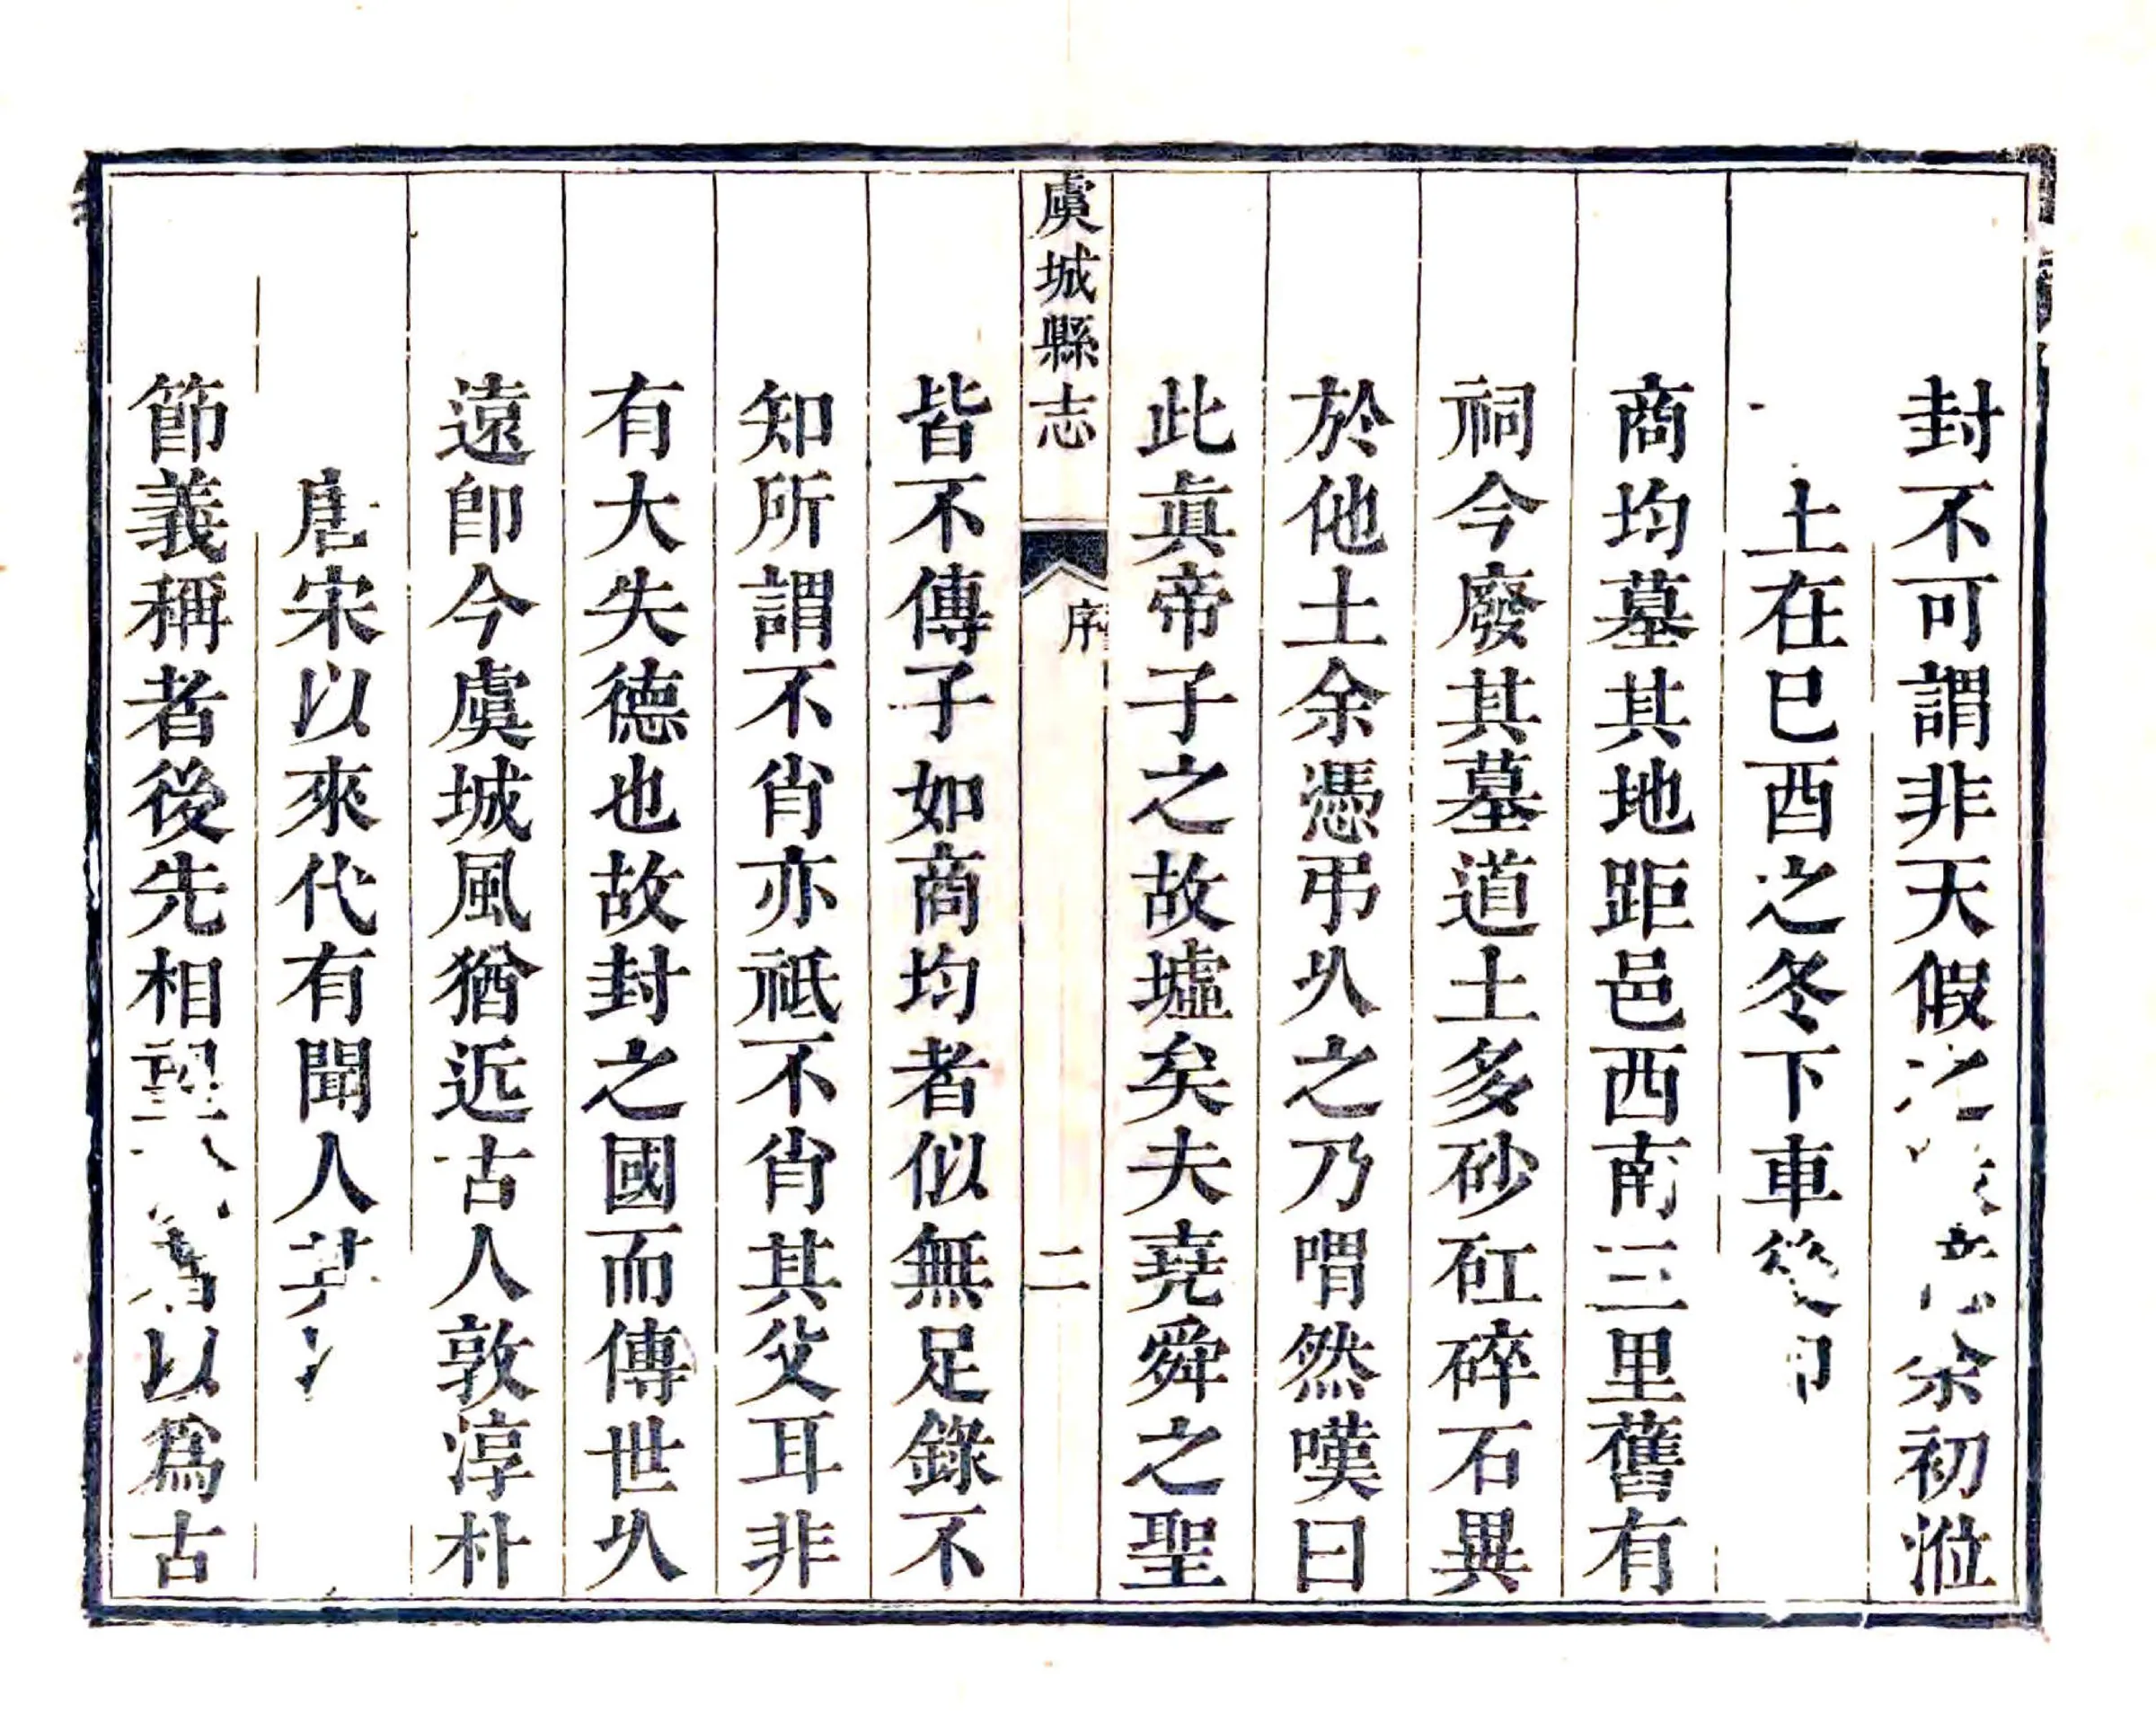 封不可謂非天假之余初涖
土在巳酉之冬下車後即
商均墓其地距邑西南三里舊有
祠今廢其墓道土多砂矼碎石異
於他土余憑弔乆之乃喟然嘆曰
此眞帝子之故墟矣夫堯舜之聖
虞城縣志
序
二
皆不傳子如商均者似無足錄不
知所謂不肖亦祇不肖其父耳非
有大失德也故封之國而傳世乆
遠卽今虞城風猶近古人敦淳朴
唐宋以來代有聞人其
節義稱者後先相望以爲古